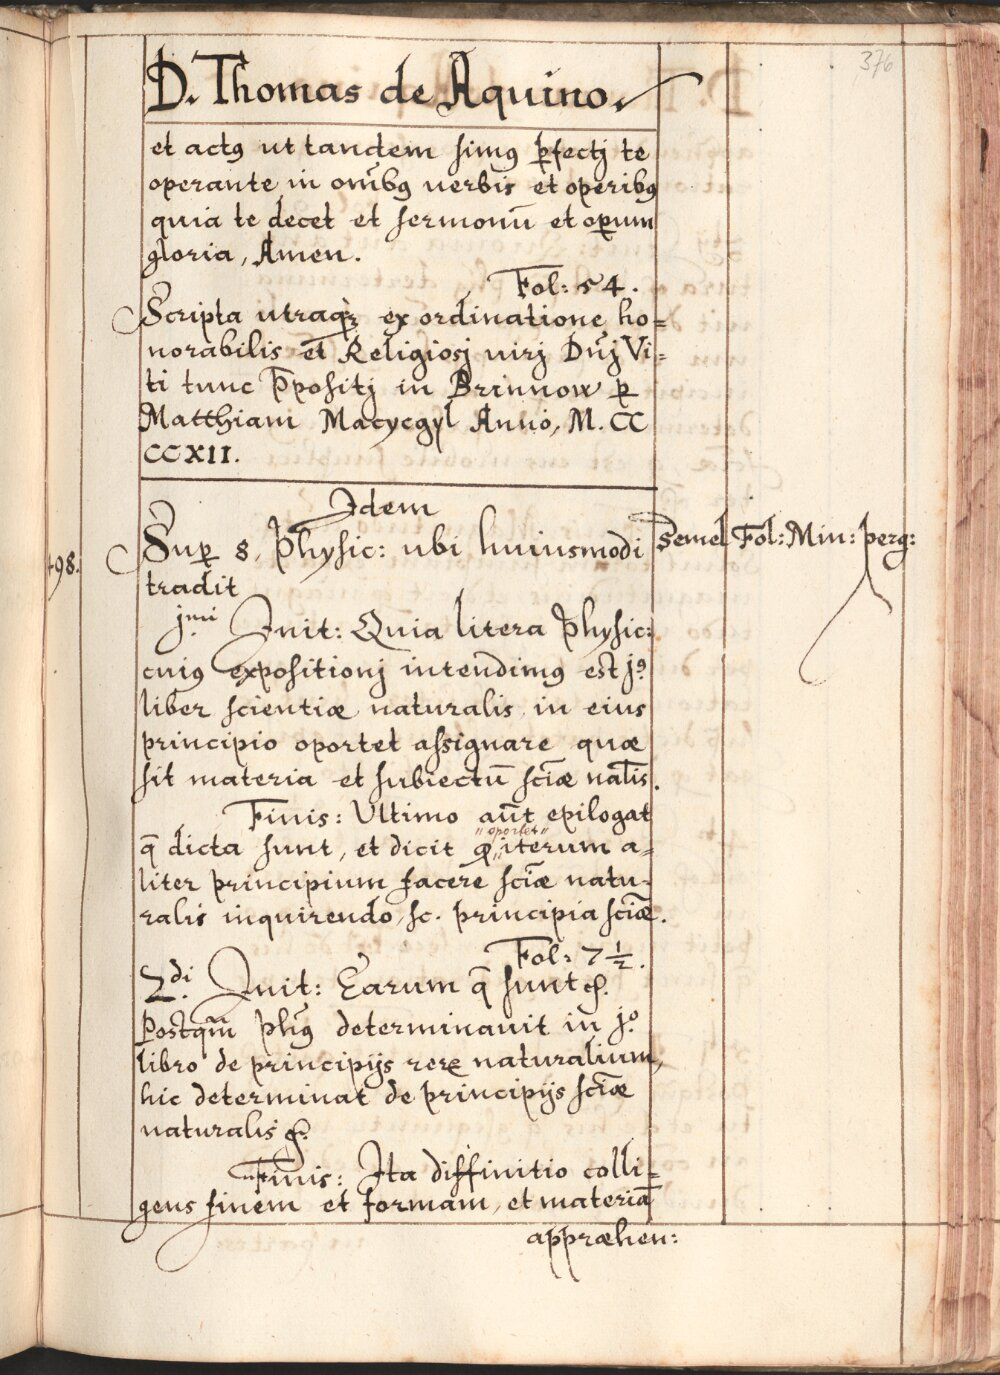 376
D. Thomas de Aquino.
et actꝰ ut tandem simꝰ ꝑfectj te
operante in om̅ibꝰ uerbis et operibꝰ
quia te decet et sermonū et oꝑum
gloria, Amen.
Fol: 54.
Scripta utraqꝫ ex ordinatione ho=
norabilis et Religiosj uirj Dn̄j Vi=
ti tunc p̄positj in Brinnow ꝑ
Matthiam Macycgyl Anno, M. CC
CCXII.
Idem
498. Suꝑ 8. Physic: ubi huiusmodi Semel Fol: Min: perg:
tradit
jmi Init: Quia litera Physic:
cuiꝰ expositionj intendimꝰ est jꝰ.
liber scientiæ naturalis in eius
principio oportet assignare quæ
sit materia et subiectū sciǣ nat̄lis.
Finis: Ultimo aūt epilogat
"oportet"
q̄ dicta sunt, et dicit ꝙ "iterum a=
liter principium facere sciǣ natu=
ralis inquirendo, sc. principia sciǣ.
Fol: 7 ½.
2di. Init: Earum q̄ sunt ꝛc.
Postqm̄ phūs determinauit in jo.
libro de principijs rerꝝ naturalium,
hic determinat de principijs sciǣ
naturalis ꝛc.
Finis: Ita diffinitio colli=
gens finem et formam, et materiā
appræhen: